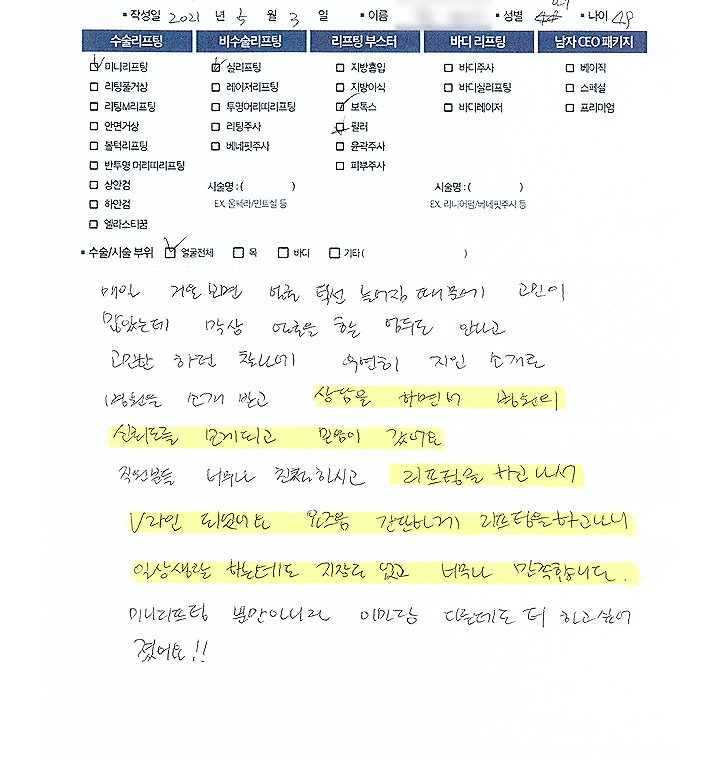 • 작성일 2021 년 5 월 3 일 • 이름 • 성별 여 • 나이 48
수술리프팅 비수술리프팅 리프팅 부스터 바디 리프팅 남자 CEO 패키지
미니리프팅 실리프팅 지방흡입 바디주사 베이직
리팅풀거상 레이저리프팅 지방이식 바디실리프팅 스페셜
리팅M리프팅 투명머리띠리프팅 보톡스 바디레이저 프리미엄
안면거상 리팅주사 필러
볼턱리프팅 베네핏주사 윤곽주사
반투명 머리띠리프팅 피부주사
상안검 시술명 : ( ) 시술명 : ( )
하안검 EX. 울쎄라/민트실 등 EX. 리니어펌/베네핏주사 등
엘라스티꿈
• 수술/시술 부위 얼굴전체 목 바디 기타 ( )
매일 거울 보면 얼굴 턱선 늘어짐 때문에 고민이
많았는데 막상 수술을 할 엄두도 안나고
고민만 하던 찰나에 우연히 지인 소개로
병원을 소개 받고 상담을 하면서 병원의
신뢰도를 믿음이 갔어요
직원분들 너무나 친절하시고 리프팅을 하고 나서
V라인 되었어요 요즈음 간단하게 리프팅을 하고나니
일상생활 하는데도 지장도 없고 너무나 만족합니다.
미니리프팅 뿐만아니라 이마랑 다른데도 더 하고싶어
졌어요!!